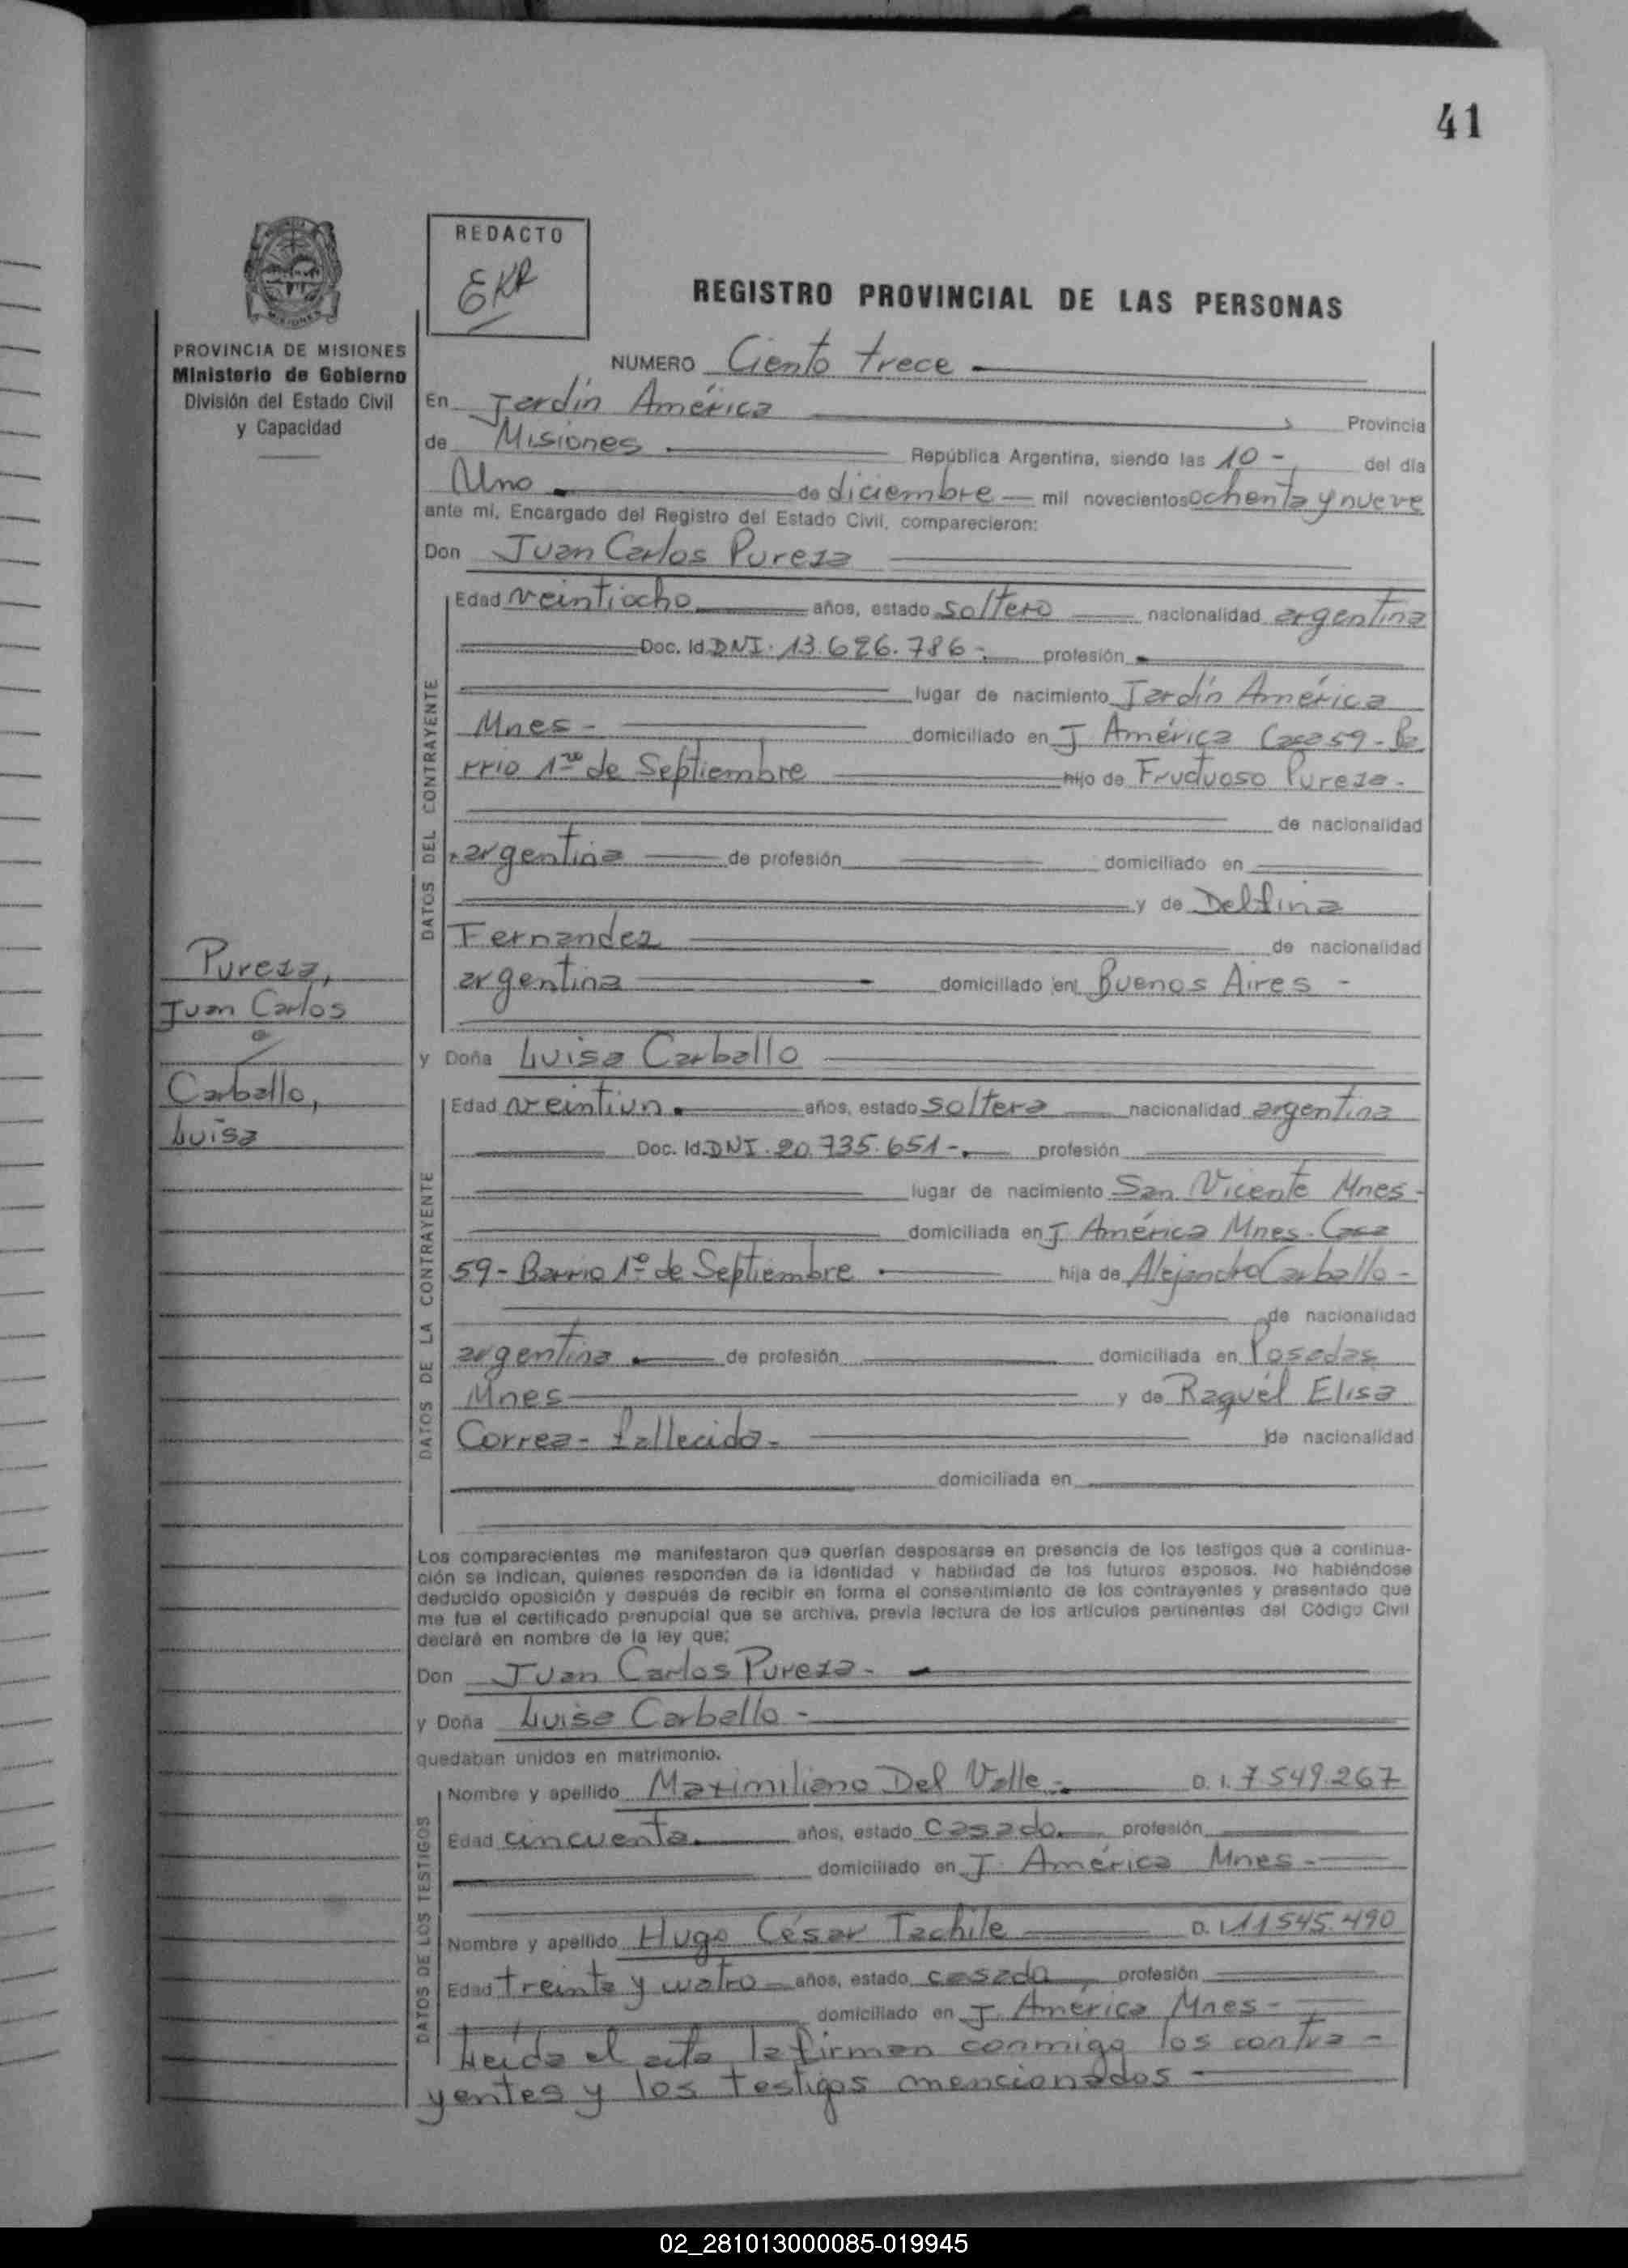 41
REDACTO
EKR
REGISTRO PROVINCIAL DE LAS PERSONAS
PROVINCIA DE MISIONES
Ministerio de Gobierno
División del Estado Civil
y Capacidad
NUMERO Ciento trece
En Jardín América Provincia
de Misiones República Argentina, siendo las 10 - del día
Uno de diciembre mil novecientos ochenta y nueve
ante mí, Encargado del Registro del Estado Civil, comparecieron:
Don Juan Carlos Pureza
DATOS DEL CONTRAYENTE
Edad veintiocho años, estado soltero nacionalidad argentina
Doc. Id. DNI. 13.626.786 - profesión
lugar de nacimiento Jardín América
Mnes - domiciliado en J. América Casa 59 - Ba
rrio 1ro de Septiembre hijo de Fructuoso Pureza -
de nacionalidad
argentina de profesión domiciliado en
y de Delfina
Fernandez de nacionalidad
argentina domiciliado en Buenos Aires -
Pureza,
Juan Carlos
Carballo,
Luisa
y Doña Luisa Carballo
DATOS DE LA CONTRAYENTE
Edad veintiun años, estado soltera nacionalidad argentina
Doc. Id. DNI. 20.735.651 - profesión
lugar de nacimiento San Vicente Mnes -
domiciliada en J. América Mnes. Casa
59 - Barrio 1º de Septiembre hija de Alejandro Carballo -
de nacionalidad
argentina de profesión domiciliada en Posadas
Mnes y de Raquél Elisa
Correa - fallecida - de nacionalidad
domiciliada en
Los comparecientes me manifestaron que querían desposarse en presencia de los testigos que a continua-
ción se indican, quienes responden de la identidad y habilidad de los futuros esposos. No habiéndose
deducido oposición y después de recibir en forma el consentimiento de los contrayentes y presentado que
me fue el certificado prenupcial que se archiva, previa lectura de los artículos pertinentes del Código Civil
declaré en nombre de la ley que:
Don Juan Carlos Pureza -
y Doña Luisa Carballo -
quedaban unidos en matrimonio.
DATOS DE LOS TESTIGOS
Nombre y apellido Maximiliano Del Valle - D. I. 7.549.267
Edad cincuenta años, estado casado profesión
domiciliado en J. América Mnes -
Nombre y apellido Hugo César Tachile D. I. 11545.490
Edad treinta y cuatro años, estado casado profesión
domiciliado en J. América Mnes -
Leida el acta la firman conmigo los contra -
yentes y los testigos mencionados -
02_281013000085-019945